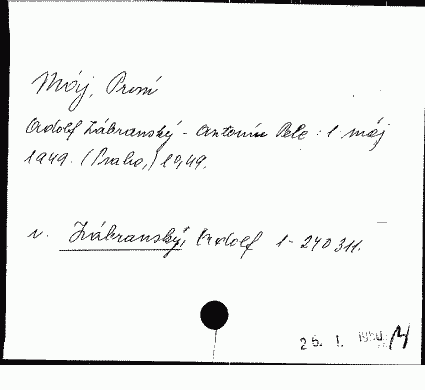 Máj, První
Adolf Zábranský - Antonín Pelc: 1 máj
1949. (Praha,) 1949.
v. Zábranský, Adolf 1-240311.
25. I. 1950 M